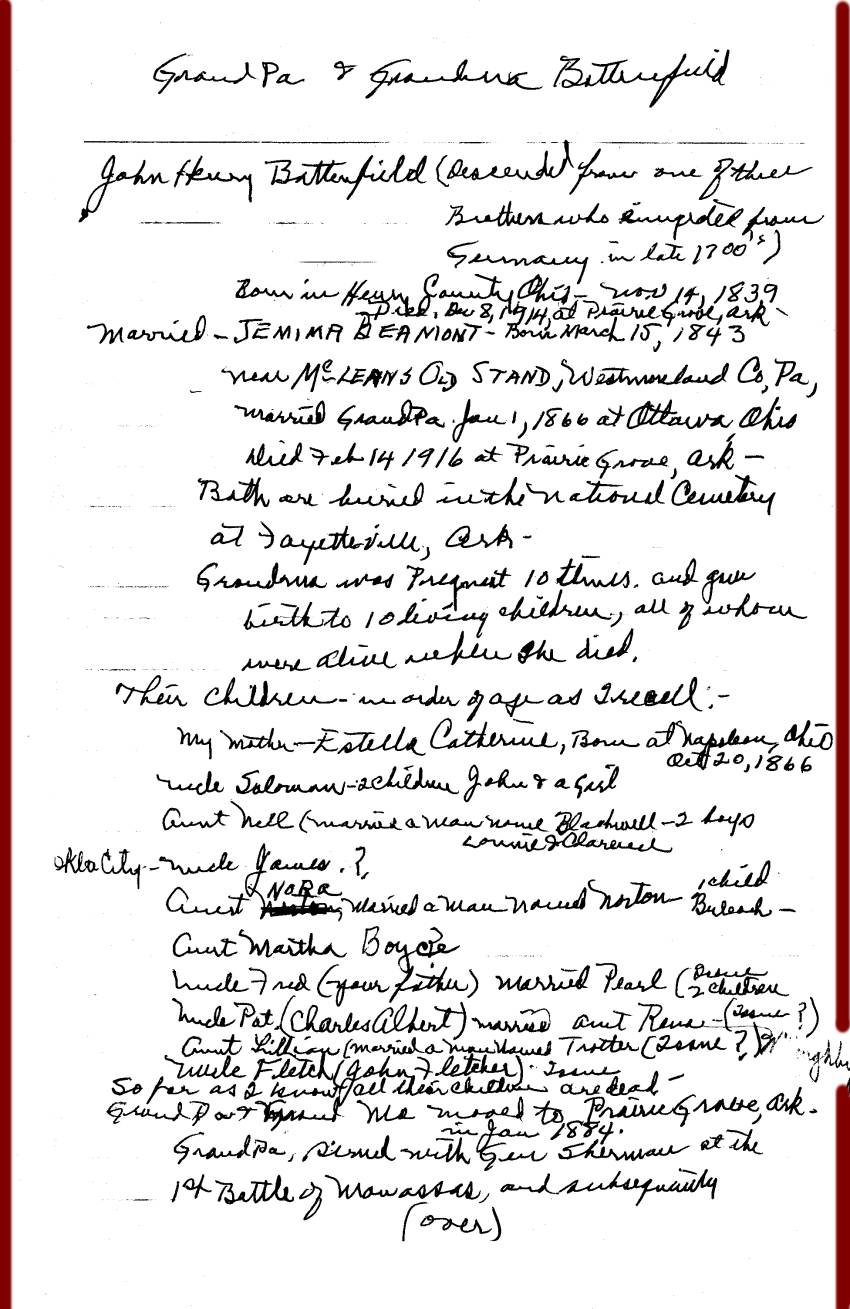 GrandPa & Grandma Battenfield
John Henry Battenfield (Descended from one of three
Brothers who emigrated from
Germany in late 1700's)
Born in Henry County Ohio - Nov 14, 1839
Died, Dec 8, 1914, at Prairie Grove, Ark -
Married - JEMIMA BEAMONT - Born March 15, 1843
near McLEANS OLD STAND, Westmoreland Co, Pa,
Married GrandPa Jan 1, 1866 at Ottawa, Ohio
Died Feb 14 1916 at Prairie Grove, Ark -
Both are buried in the National Cemetery
at Fayetteville, Ark -
Grandma was Pregnant 10 times. and gave
birth to 10 living children, all of whom
were alive when she died.
Their children - in order of age as I recall: -
My Mother - Estella Catherine, Born at Napoleon, Ohio
Oct 20, 1866
Uncle Soloman - 2 children John & a Girl
Aunt Nell (married a man name Blackwell - 2 boys
Lonnie & Clarence
Okla City - Uncle James. ?,
Aunt NORA, Married a Man named Norton - 1 child
Buleah -
Aunt Martha Boyce
Uncle Fred (your father) married Pearl (Issue
2 children
Uncle Pat. (Charles Albert) married aunt Rena - (Issue ?)
Aunt Lillian (married a man named Trotter (Issue ?)
Uncle Fletch (John Fletcher) Issue
So far as I know all their children are dead -
GrandPa & Grand Ma moved to Prairie Grove, Ark.
in Jan 1884.
GrandPa, served with Gen Sherman at the
1st Battle of Manassas, and subsequently
(over)